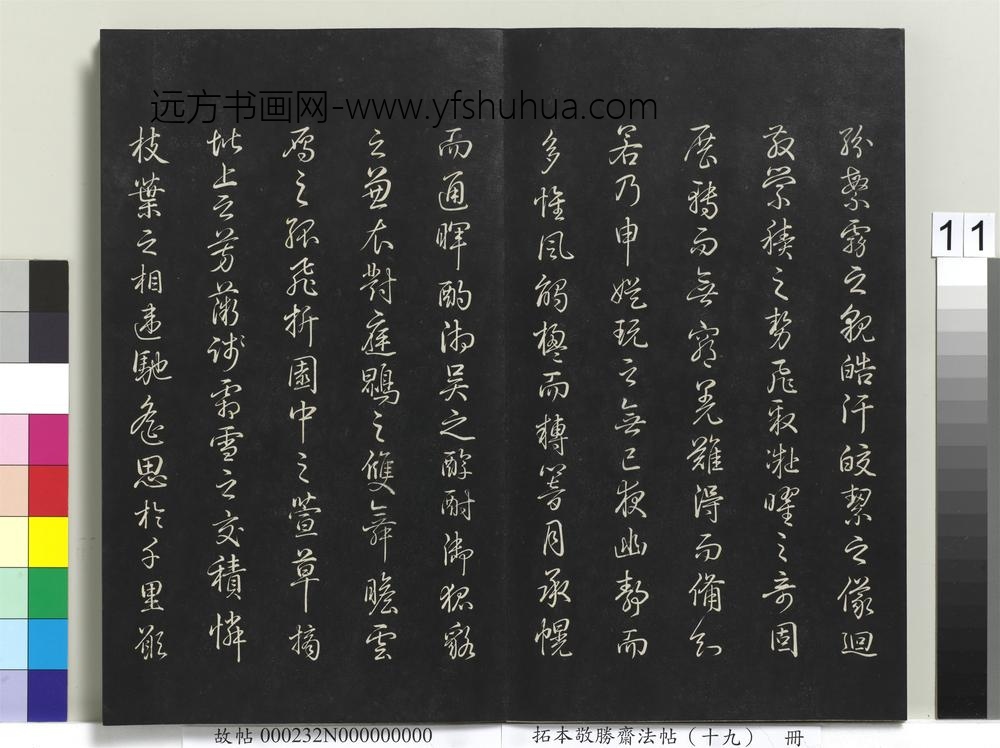 远方书画网-www.yfshuhua.com
紛繁霧之貌皓汗皎絜之儀迴
散縈積之勢飛聚凝曜之奇固
展轉而無窮羌難得而備知
若乃申娛玩之無已夜幽靜而
多懷風觸楹而轉響月承幌
而通暉酌湘吳之醇酎御狐貉
之兼衣對庭鵾之雙舞瞻雲
鴈之孤飛折園中之萱草摘
堦上之芳薇踐霜雪之交積憐
枝葉之相違馳遙思於千里願
11
故帖 000232N000000000
拓本敬勝齋法帖（十九） 冊